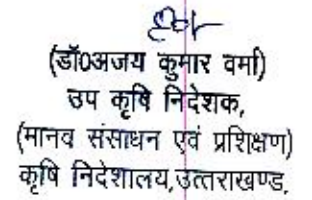 (डॉ0अजय कुमार वर्मा)
उप कृषि निदेशक,
(मानव संसाधन एवं प्रशिक्षण)
कृषि निदेशालय,उत्तराखण्ड.